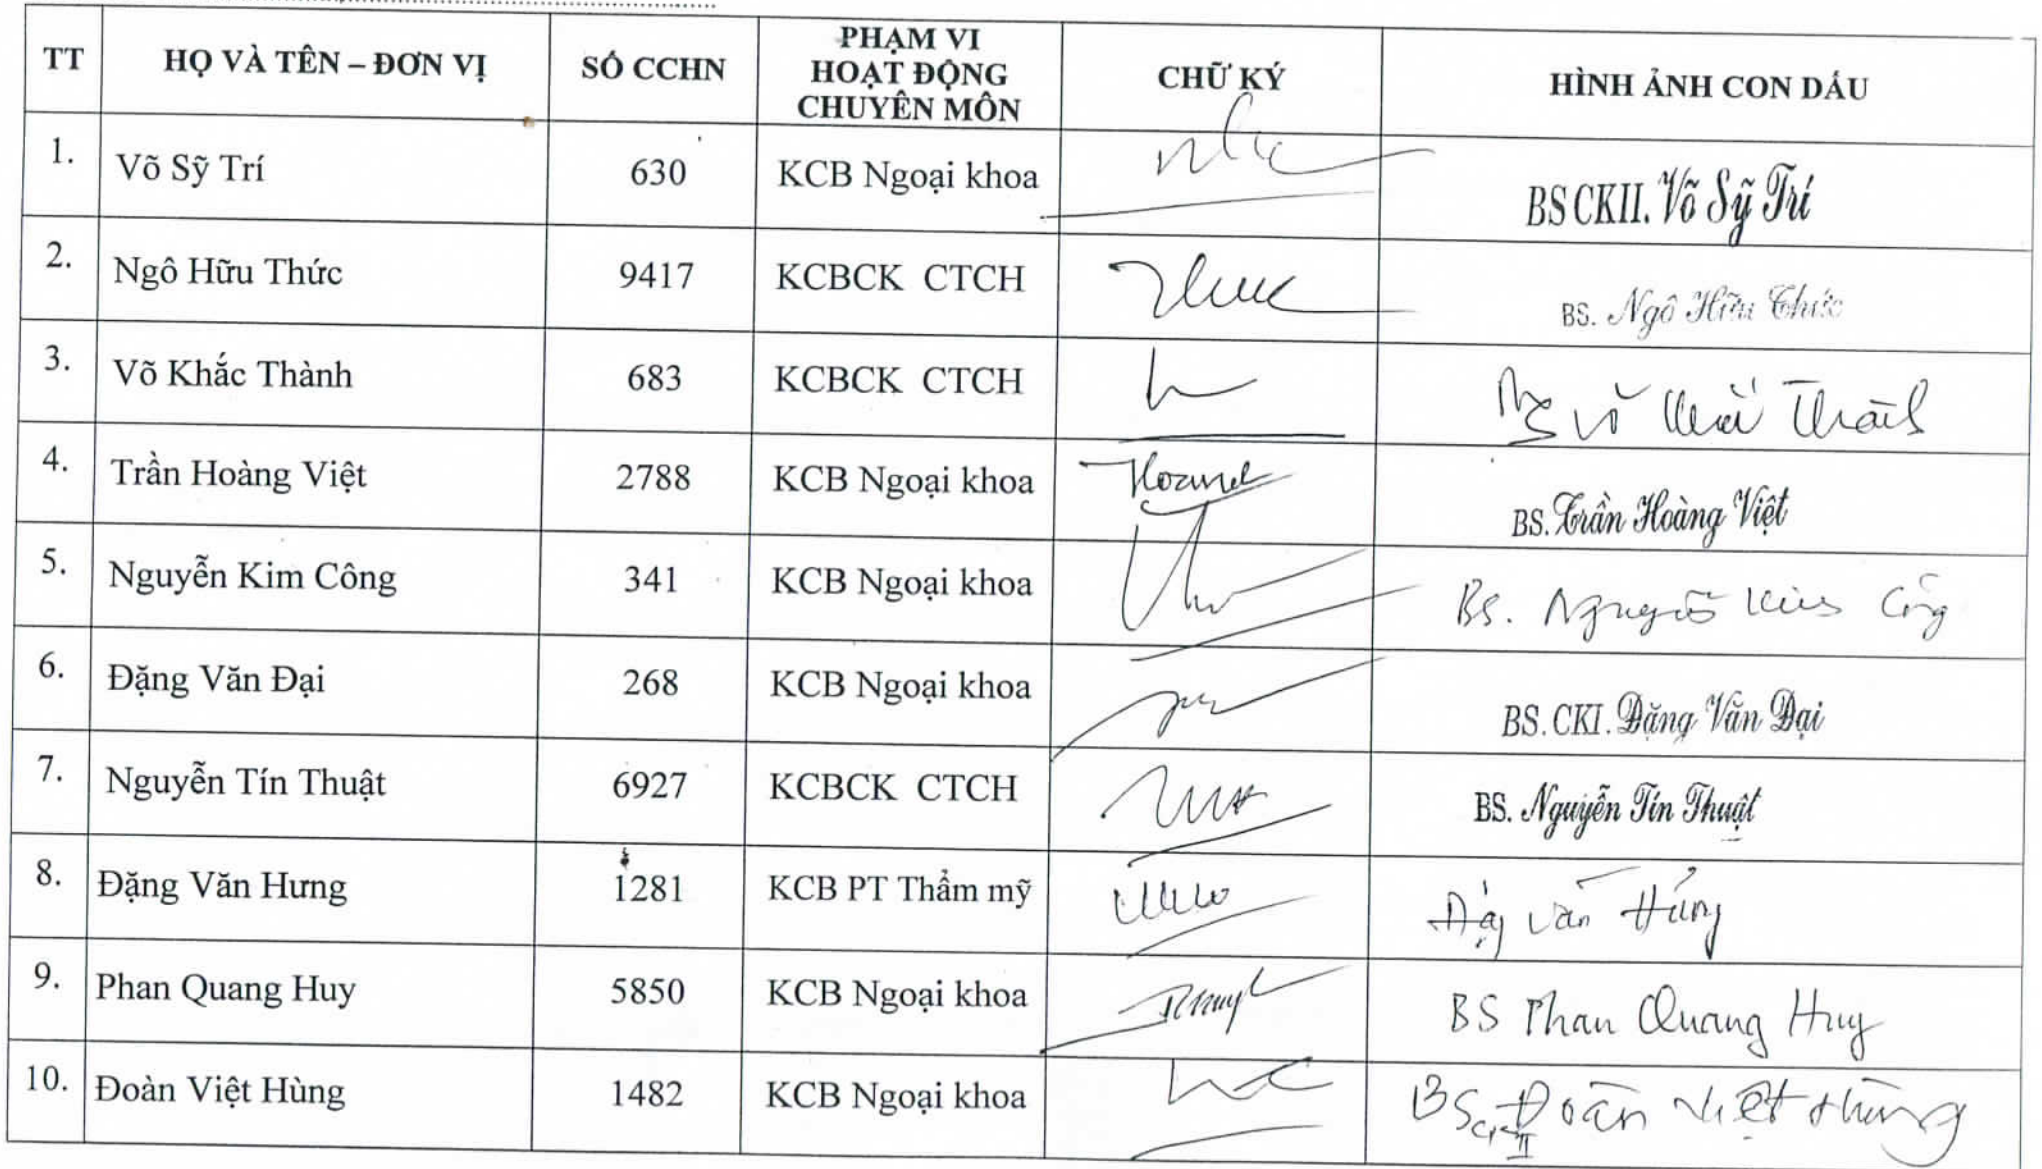 TT HỌ VÀ TÊN – ĐƠN VỊ SỐ CCHN PHẠM VI HOẠT ĐỘNG CHUYÊN MÔN CHỮ KÝ HÌNH ẢNH CON DẤU
1. Võ Sỹ Trí 630 KCB Ngoại khoa BS CKII. Võ Sỹ Trí
2. Ngô Hữu Thức 9417 KCBCK CTCH BS. Ngô Hữu Thức
3. Võ Khắc Thành 683 KCBCK CTCH Võ Thành
4. Trần Hoàng Việt 2788 KCB Ngoại khoa BS. Trần Hoàng Việt
5. Nguyễn Kim Công 341 KCB Ngoại khoa Bs. Nguyễn Kim Công
6. Đặng Văn Đại 268 KCB Ngoại khoa BS. CKI. Đặng Văn Đại
7. Nguyễn Tín Thuật 6927 KCBCK CTCH BS. Nguyễn Tín Thuật
8. Đặng Văn Hưng 1281 KCB PT Thẩm mỹ Đặng Văn Hưng
9. Phan Quang Huy 5850 KCB Ngoại khoa BS Phan Quang Huy
10. Đoàn Việt Hùng 1482 KCB Ngoại khoa BS CKII Đoàn Việt Hùng